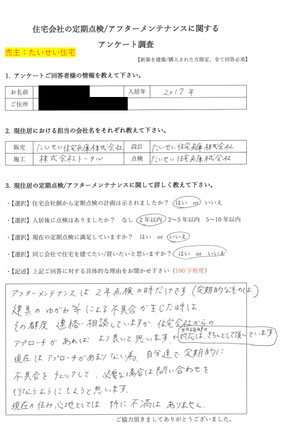 住宅会社の定期点検/アフターメンテナンスに関する
アンケート調査
売主：たいせい住宅
【新築を建築/購入された方限定、全て回答必須】
1. アンケートご回答者様の情報を教えて下さい。
お名前 入居年 2017年
ご住所
2. 現住居における担当の会社名をそれぞれ教えて下さい。
販売 たいせい住宅兵庫株式会社 設計 たいせい住宅兵庫株式会社
施工 株式会社トータル 点検 たいせい住宅兵庫株式会社
3. 現住居の定期点検/アフターメンテナンスに関して詳しく教えて下さい。
・【選択】住宅会社から定期点検の計画は示されましたか？ はい or いいえ
・【選択】入居後に点検はありましたか？ なし 2年以内 2～5年以内 5～10年以内
・【選択】現在の定期点検に満足していますか？ はい or いいえ
・【選択】同じ会社で住宅を建てたい/買いたいと思いますか？ はい or いいえ
・【記述】上記ご回答に対する具体的な理由をお聞かせ下さい（100字程度）
アフターメンテナンスは2年点検の時だけです（定期的なものは）
建具のゆがみ等による不具合が生じた時は
その都度 連絡・相談していますが、住宅会社からの
アプローチがあればより良いと思いますが 対応はきちんとして頂いています
現在はアプローチがあまりない為、自分達で定期的に
不具合をチェックして、必要な場合は問い合わせを
するようにしようと思います。
現在の住み心地としては 特に不満はありません。
ご協力頂きましてありがとうございました。